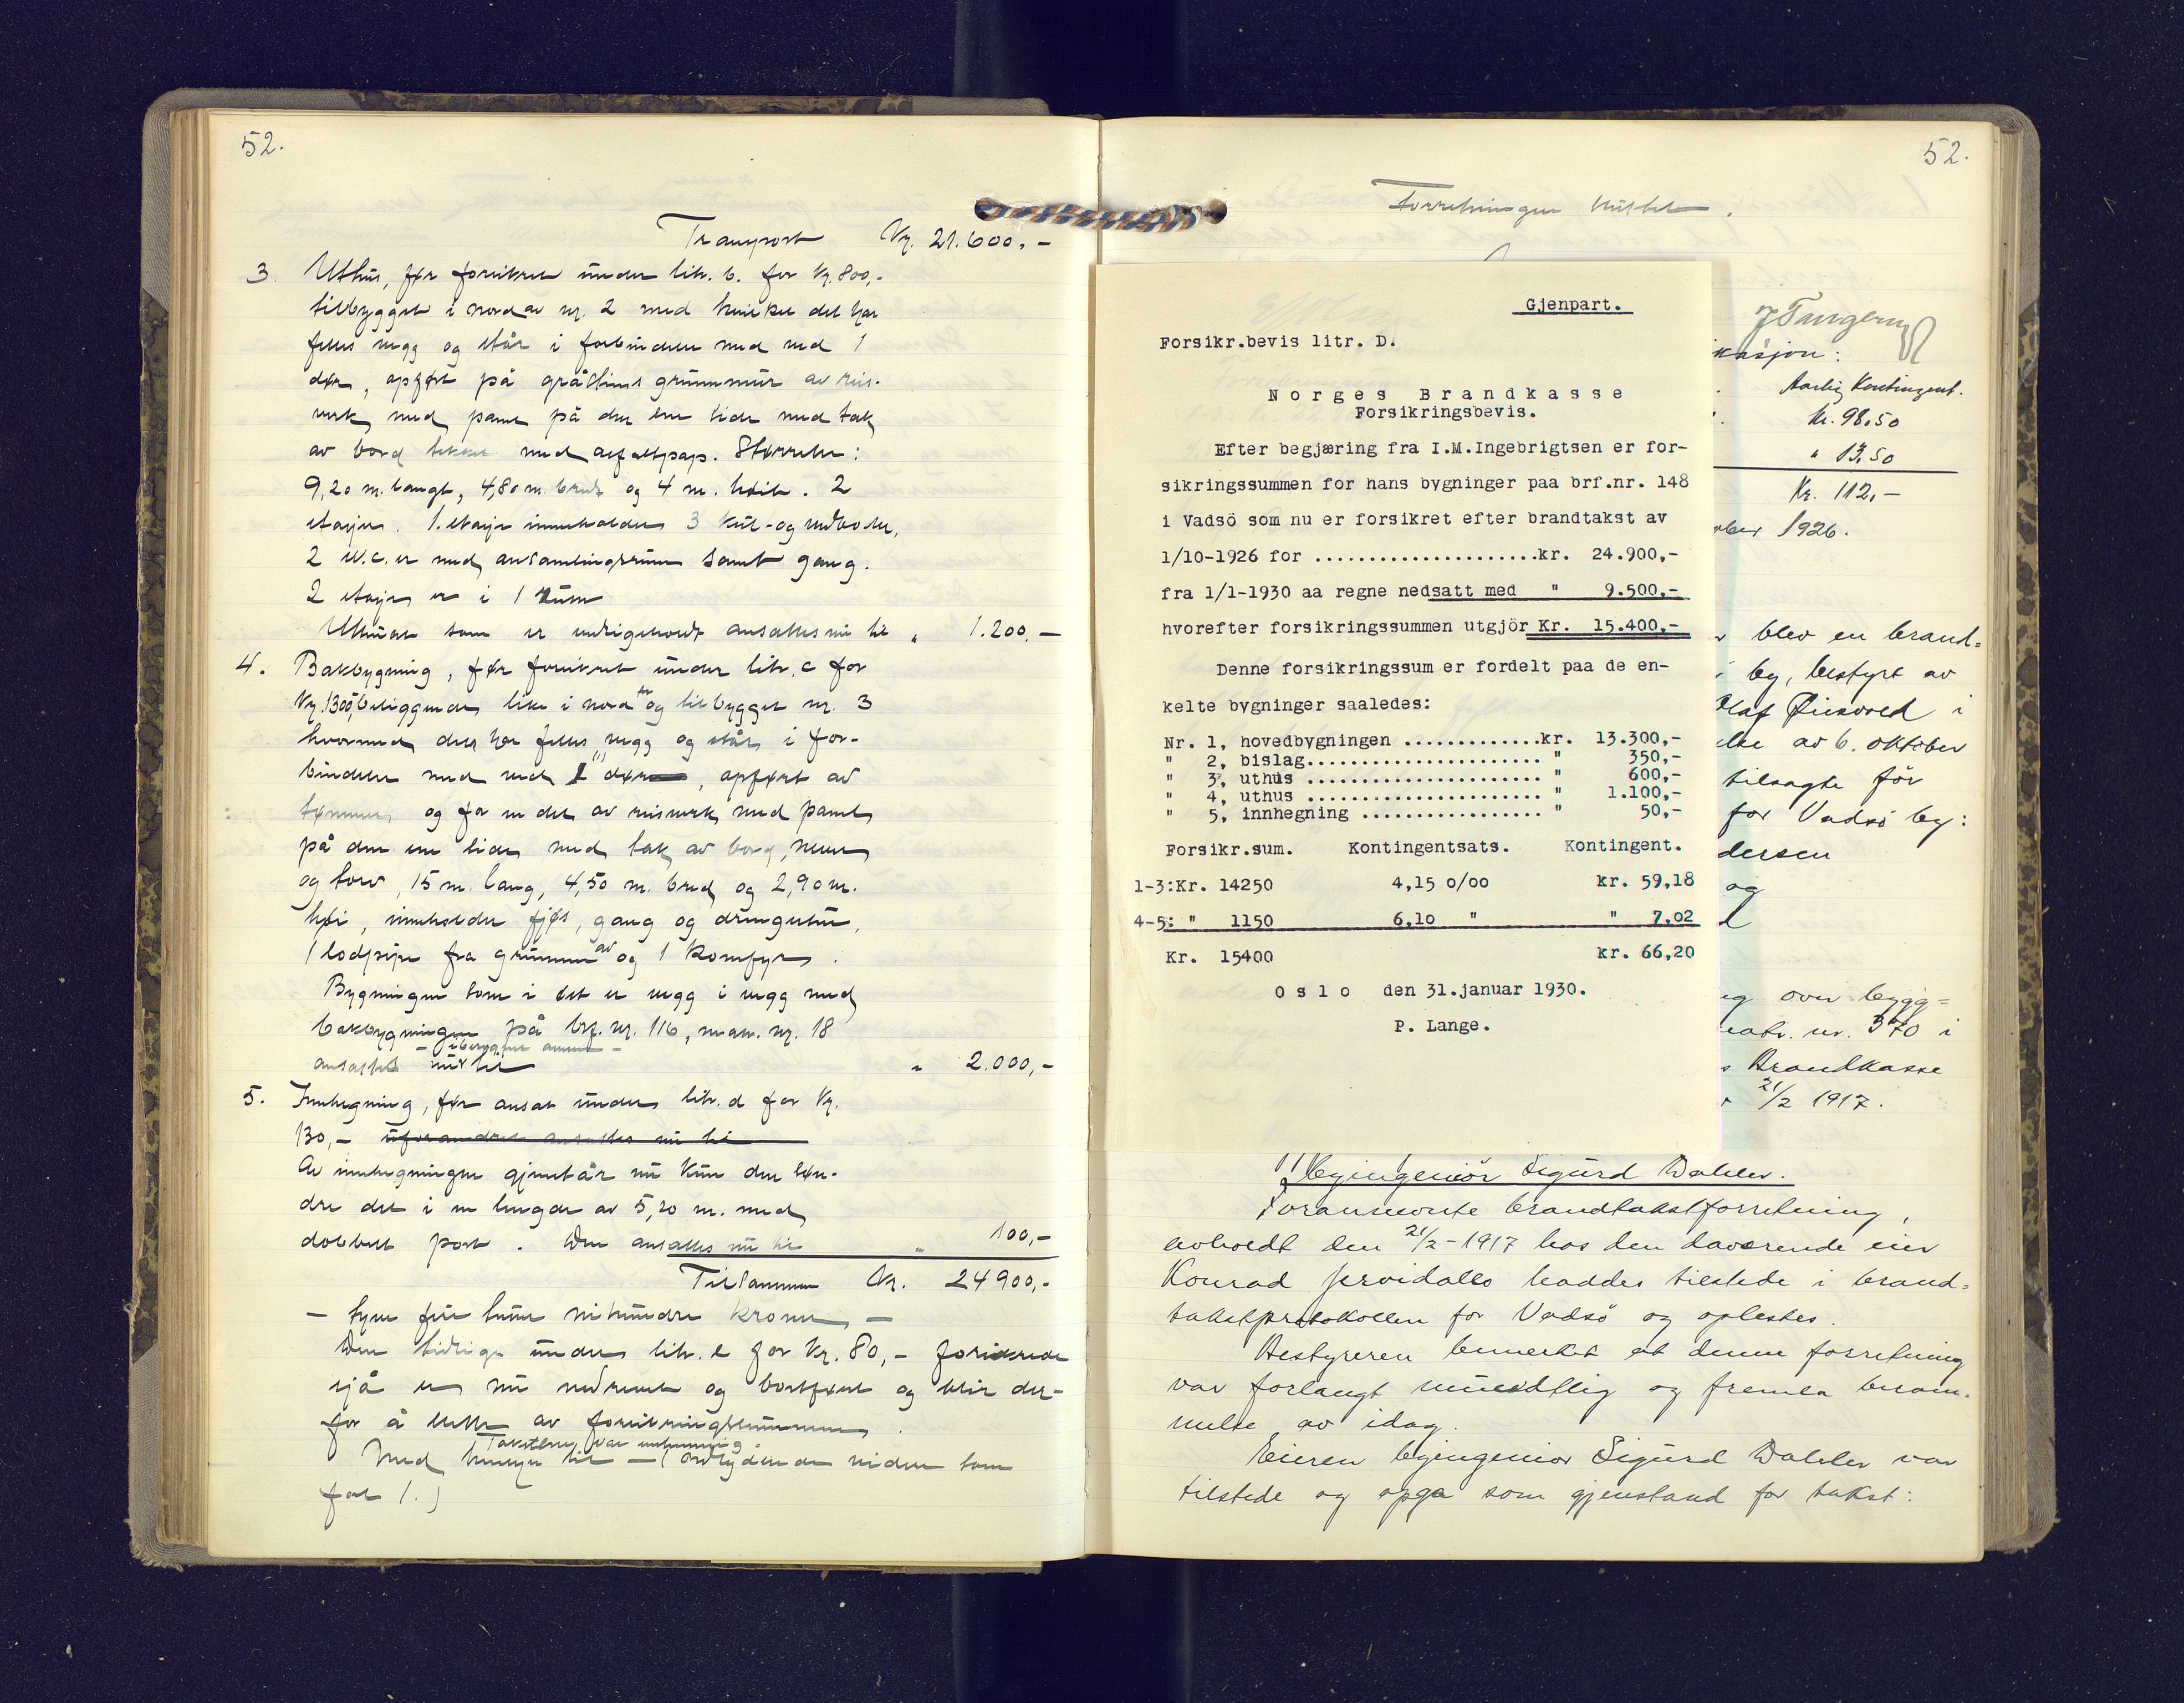 52.
Transport Kr. 21.600,-
3. Uthus, før forsikret under litr. b. for Kr. 800,-
tilbygget i nord av nr. 2 med hvilket det har
felles vegg og står i forbindelse med ved 1
dør, opført på gråstens grunnmur av reis-
verk med panel på den ene side med tak
av bord tekket med asfaltpap. Størrelse:
9,20 m. langt, 4,80 m. bredt og 4 m. høit. 2
etasjer. 1. etasje inneholder 3 kul- og vedboder,
2 w.c. er med ansamlingsrum samt gang.
2 etasje er i 1 rum
Uthuset som er vedligeholdt ansattes nu til " 1.200,-
4. Bakbygning, før forsikret under litr. c for
Kr. 1300,- beliggende like i nord for og tilbygget nr. 3
hvormed den har felles vegg og står i for-
bindelse med ved 1 dør, opført av
tømmer og for en del av reisverk med panel
på den ene side med tak av bord, never
og torv, 15 m. lang, 4,50 m. bred og 2,90 m.
høi, inneholder fjøs, gang og drengestue,
1 lodpipe fra grunnen av og 1 komfyr.
Bygningen som i øst er vegg i vegg med
bakbygningen på brf. nr. 116, matr. nr. 18
ansattes nu til " 2.000,-
5. Innhegning, før ansat under litr. d for Kr.
130,- uforandret ansattes nu til
Av innhegningen gjenstår nu kun den søn-
dre del i en lengde av 5,20 m. med
dobbelt port. Den ansattes nu til " 100,-
Tilsammen Kr. 24900,-
- tyve fire tusen nihundre kroner -
Den tidligere under litr. e for Kr. 80,- forsikrede
sjå er nu nedrevet og bortført og blir der-
for å slette av forsikringssummen.
Taksten var enstemmig.
Med hensyn til - (Ordlydende videre som
for 1.)
52.
Forretningen sluttet.
J Tangeraas
kasjon:
Aarlig Kontingent.
Kr. 98,50
" 13,50
Kr. 112,-
ober 1926.
Gjenpart.
Forsikr.bevis litr. D.
Norges Brandkasse
Forsikringsbevis.
Efter begjæring fra I.M.Ingebrigtsen er for-
sikringssummen for hans bygninger paa brf.nr. 148
i Vadsö som nu er forsikret efter brandtakst av
1/10-1926 for .....................kr. 24.900,-
fra 1/1-1930 aa regne nedsatt med " 9.500,-
hvorefter forsikringssummen utgjör Kr. 15.400,-
Denne forsikringssum er fordelt paa de en-
kelte bygninger saaledes:
Nr. 1, hovedbygningen .............kr. 13.300,-
" 2, bislag...................... " 350,-
" 3, uthus ...................... " 600,-
" 4, uthus ...................... " 1.100,-
" 5, innhegning ................. " 50,-
Forsikr.sum. Kontingentsats. Kontingent.
1-3:Kr. 14250 4,15 o/oo kr. 59,18
4-5: " 1150 6,10 " " 7,02
Kr. 15400 kr. 66,20
Oslo den 31.januar 1930.
P. Lange.
blev en brand=
by, bestyrt av
Olaf Øiesvold i
else av 6. oktober
tilsagte för
for Vadsö by:
dersen
og
d
eg over bygg=
matr. nr. 370 i
s Brandkasse
21/2 1917.
byingeniör Sigurd Dahler.
Forannevnte brandtakstforretning,
avholdt den 21/2-1917 hos den daværende eier
Konrad Jervidalo haddes tilstede i brand=
takstprotokollen for Vadsö og oplestes.
Bestyreren bemerket at denne forretning
var forlangt mundtlig og fremla beram-
melse av idag.
Eieren byingeniör Sigurd Dahler var
tilstede og opga som gjenstand for takst: